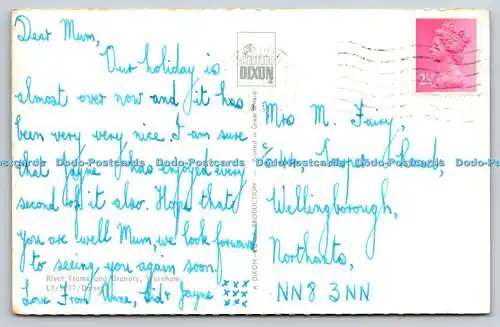 Dear Mum,
Our holiday is
almost over now and it has
been very very nice I am sure
that Jayne has enjoyed every
second of it also. Hope that
you are well Mum, we look forward
to seeing you again soon.
Love From Anne, Sid & Jayne
xxx
xxx
xxx
River Frome and Granary, Wareham
LY/ /Dorset
DIXON
A DIXON PRODUCTION
Printed in Great Britain
2½
Mrs M.
Road,
Wellingborough,
Northants,
NN8 3NN
Dodo-Postcards Dodo-Postcards Dodo-Postcards Dodo-Postcards Dodo-Postcards